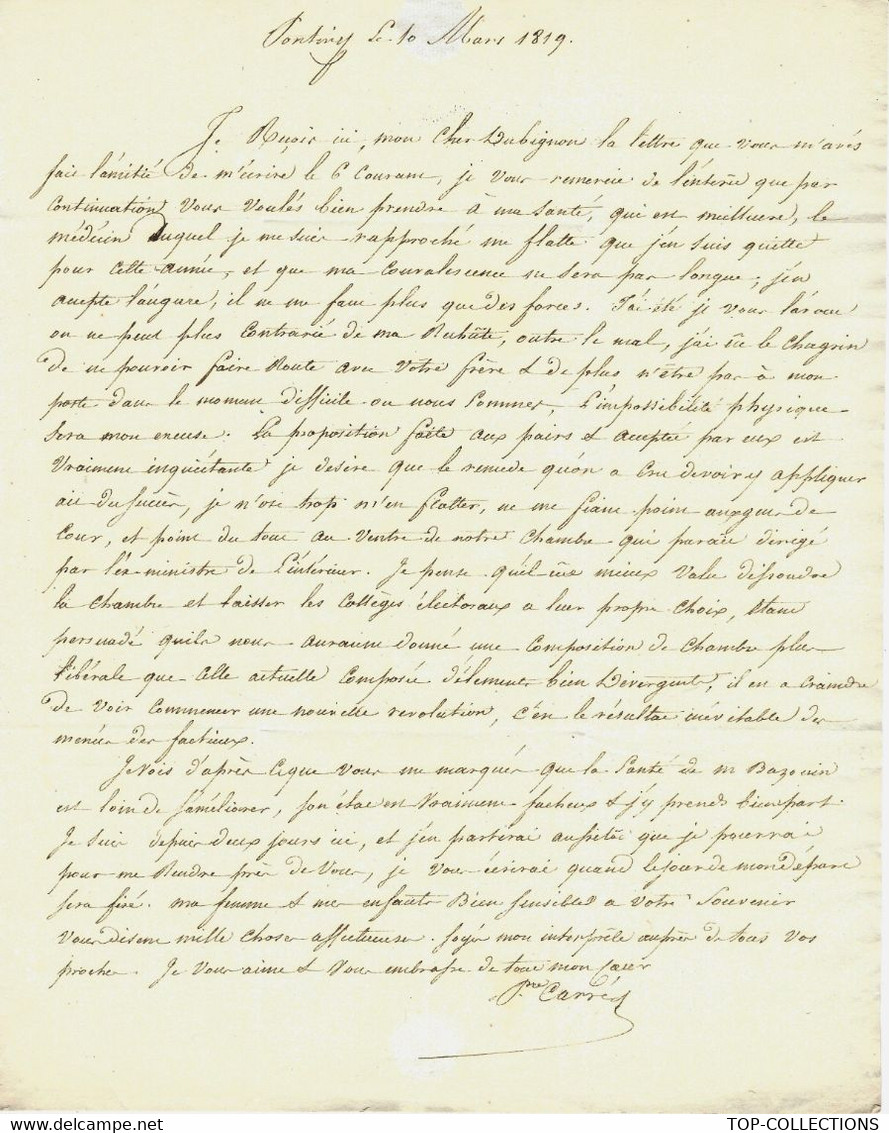 Pontivy le 10 Mars 1819.
Je Reçois ici, mon Cher Dubignon la lettre que Vous m'avés
fait l'amitié de m'écrire le 6 Courant, je Vous remercie de l'intérêt que par
Continuation Vous Voulés bien prendre à ma Santé, qui est meilleure, le
médecin duquel je me suis rapproché me flatte que j'en suis quitte
pour cette année, et que ma Convalescence ne sera pas longue; j'en
accepte l'augure, il ne me faut plus que des forces. J'ai été je vous l'avoue
on ne peut plus Contrarié de ma Rechûte, outre le mal, j'ai eû le Chagrin
de ne pouvoir faire Route avec Votre frère & de plus n'être pas à mon
poste dans le moment difficile ou nous Sommes, L'impossibilité physique
sera mon excuse. La proposition faite aux pairs & acceptée par eux est
Vraiment inquiétante je desire que le remede qu'on a cru devoir y appliquer
ait du succès, je n'ose trop m'en flatter, ne me fiant point aux gens de
Cour, et point du tout au Ventre de notre Chambre qui parait dirigé
par l'ex-ministre de L'intérieur. Je pense qu'il eût mieux Valu dissoudre
la Chambre et laisser les Collèges électoraux a leur propre choix, étant
persuadé qu'ils nous auraient donné une Composition de Chambre plus
libérale que celle actuelle Composée d'élements bien Divergents, il est a Craindre
de Voir Commencer une nouvelle revolution, c'est le résultat inévitable des
menées des factieux.
Je Vois d'après ce que Vous me marqués que la Santé de m Bazouin
est loin de s'améliorer, son état est Vraiment facheux & j'y prends bien part.
Je suis depuis deux jours ici, et j'en partirai aussitôt que je pourrai
pour me Rendre près de Vous, je Vous écrirai quand le jour de mon départ
sera fixé. ma femme & mes enfants Bien Sensibles a Votre Souvenir
Vous disent mille choses affectueuses. soyés mon interprète auprès de tous Vos
proches. Je Vous aime & Vous embrasse de tout mon Cœur
Carré
TOP-COLLECTIONS